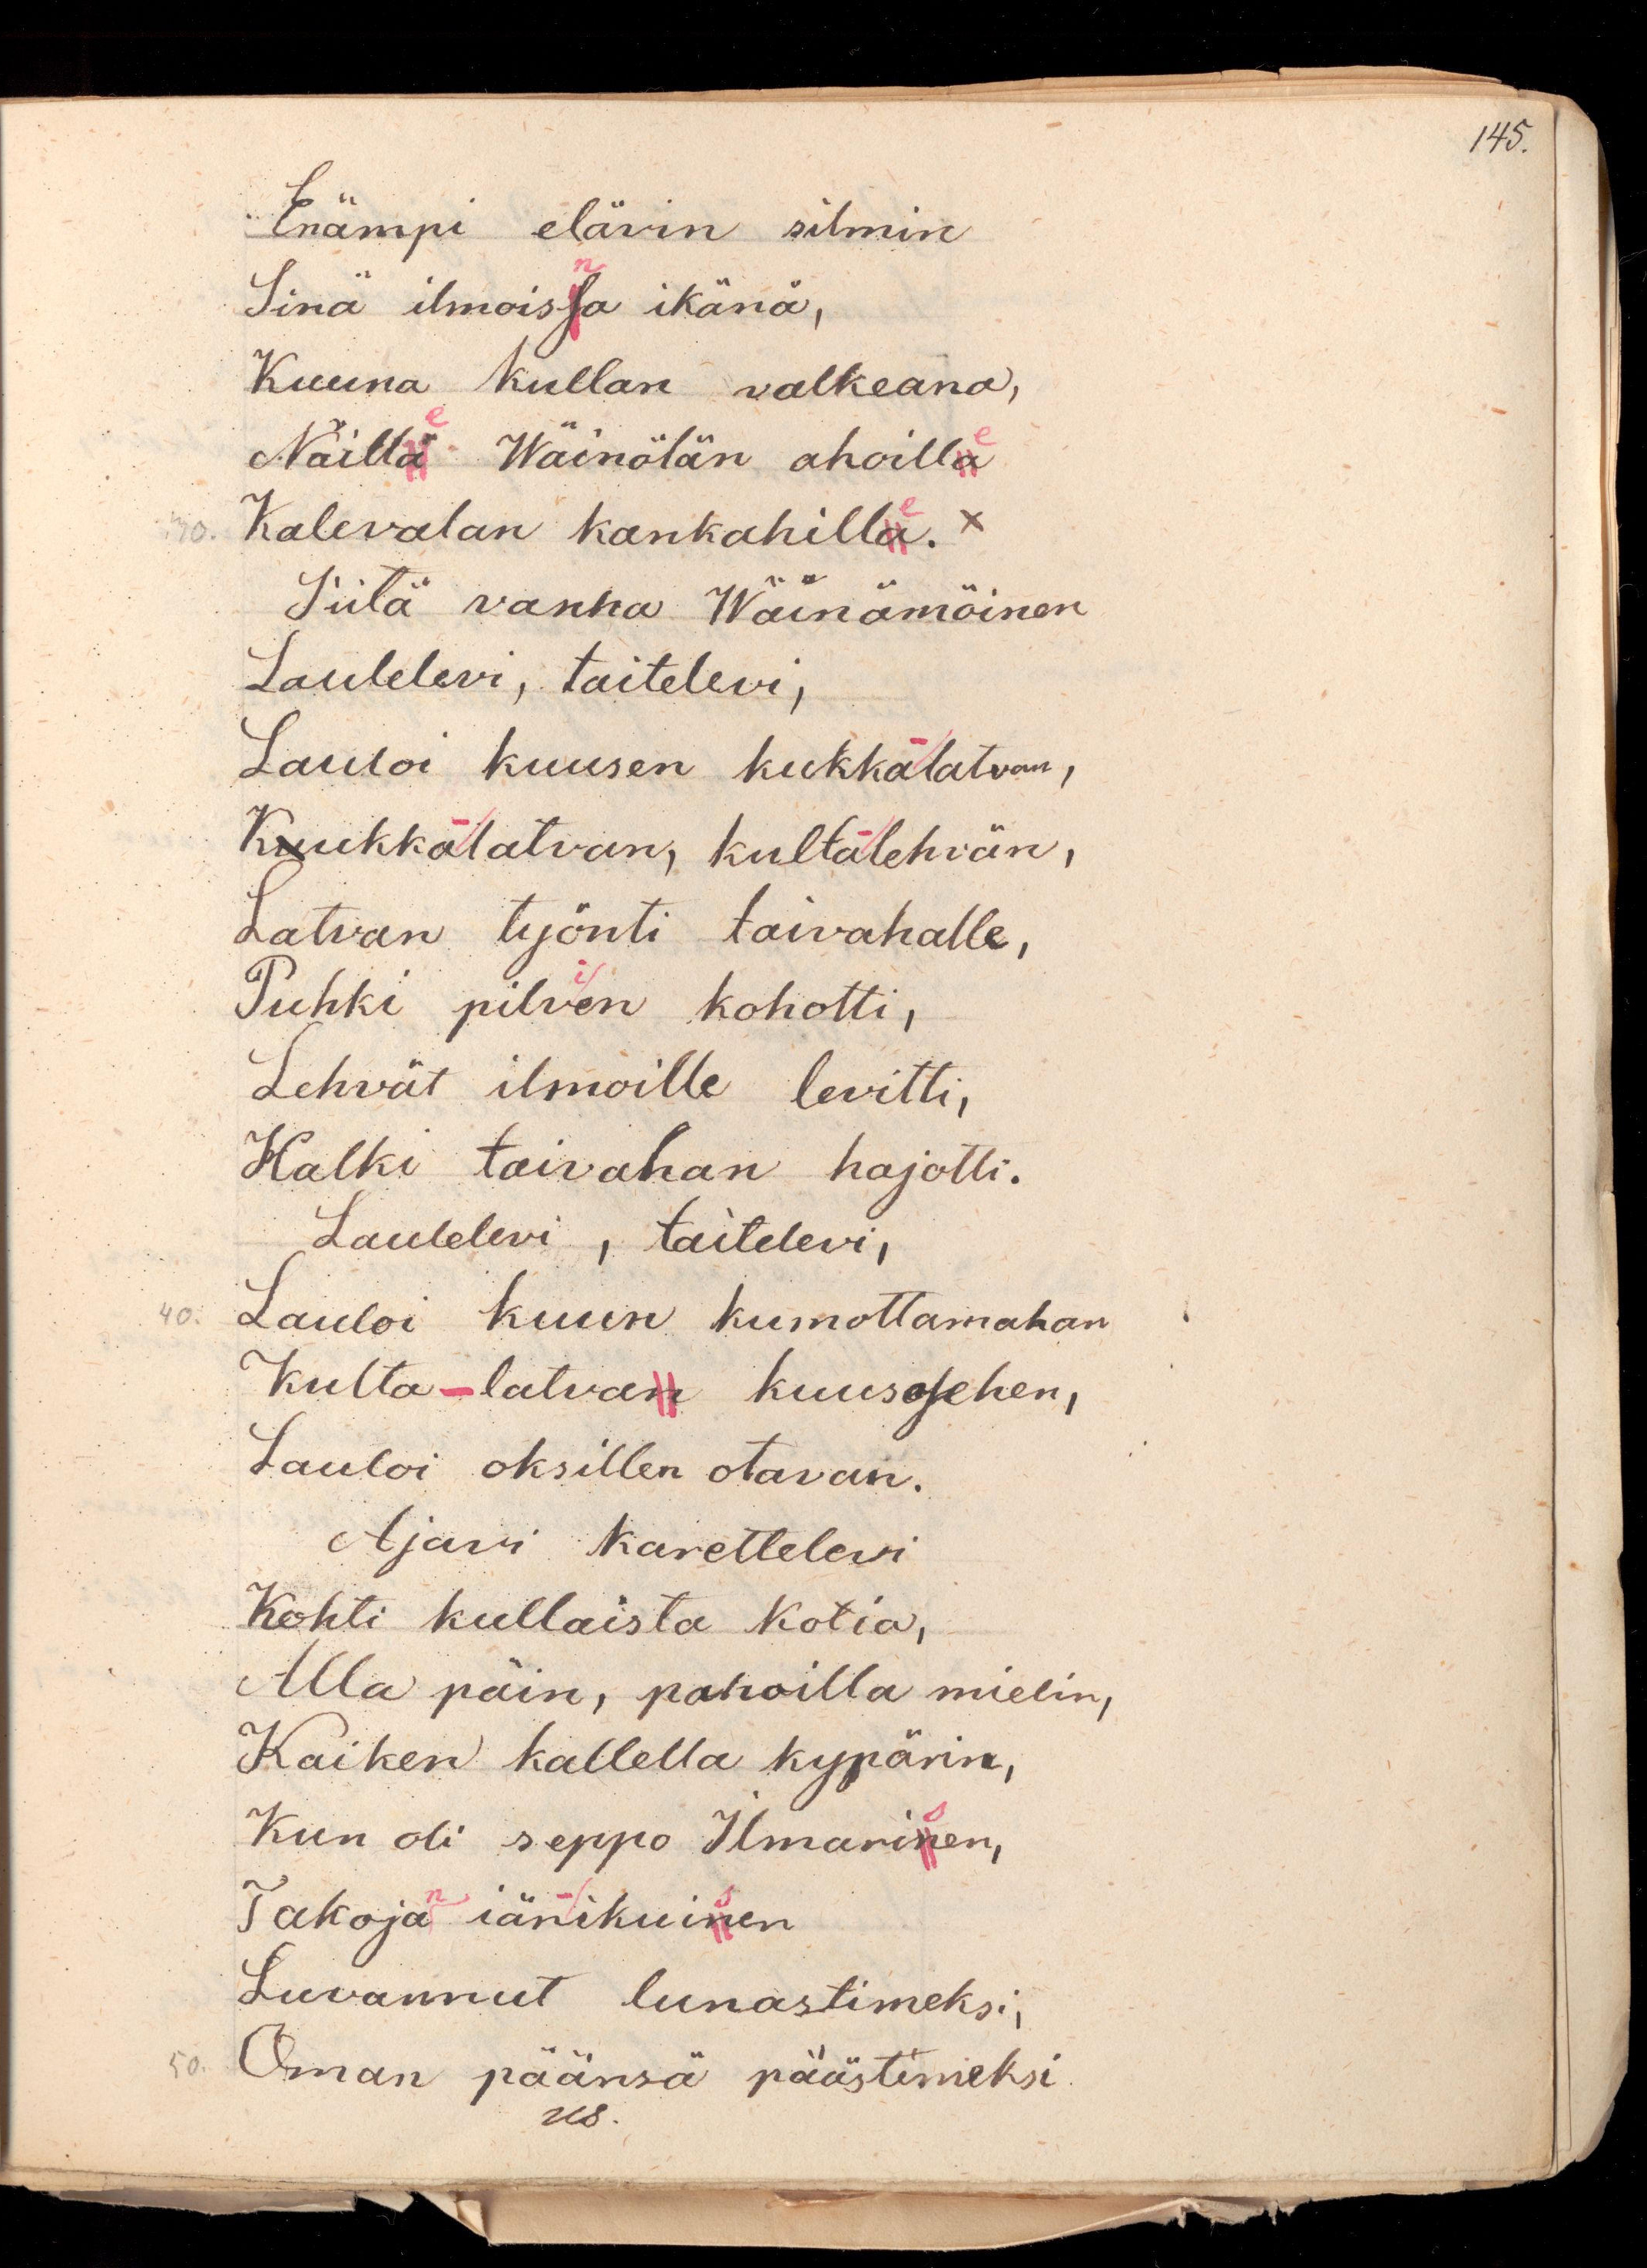 145.
Enämpi elävin silmin
Sinä ilmoisna ikänä,
Kuuna kullan valkeana,
Näille Wäinölän ahoille
30. Kalevalan kankahille. x
Siitä vanha Wäinämöinen
Laulelevi, taitelevi,
Lauloi kuusen kukka-latvan,
Kukka-latvan, kulta-lehvän,
Latvan työnti taivahalle,
Puhki pilvien kohotti,
Lehvät ilmoille levitti,
Halki taivahan hajotti.
Laulelevi, taitelevi,
40. Lauloi kuun kumottamahan
Kulta-latva kuusosehen,
Lauloi oksillen otavan.
Ajavi karettelevi
Kohti kullaista kotia,
Alla päin, pahoilla mielin,
Kaiken kallella kypärin,
Kun oli seppo Ilmarisen,
Takojan iän-ikuisen
Luvannut lunastimeksi,
50. Oman päänsä päästimeksi
us.